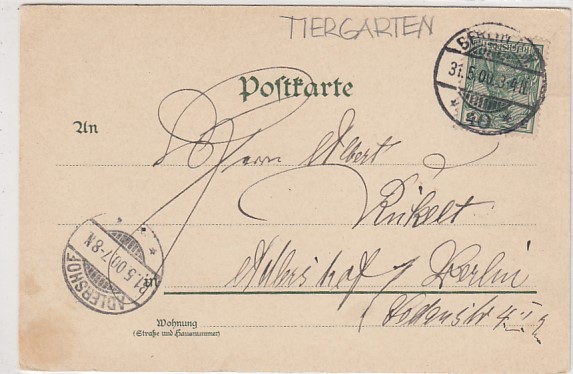 TIERGARTEN
BERLIN
31.5.00.3-4N.
40
Postkarte
An
Herrn Albert
Rickelt
Adlershof / Berlin
in
ADLERSHOF
31.5.00.7-8N.
Wohnung
(Straße und Hausnummer)